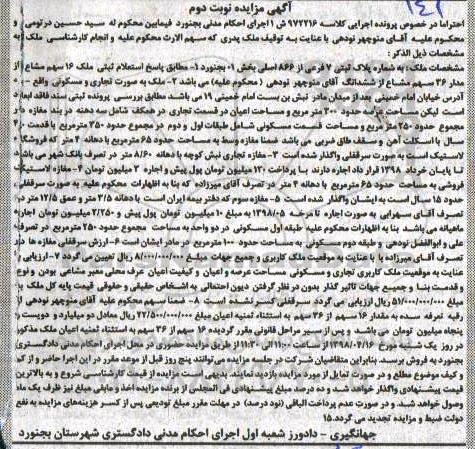 ۱۴۱
آگهی مزایده نوبت دوم
احتراما در خصوص پرونده اجرایی کلاسه ۹۷۲۲۱۶ ش ۱ اجرای احکام مدنی بجنورد فیمابین محکوم له سید حسین درتومی و
محکوم علیه آقای منوچهر نودهی با عنایت به توقیف ملک پدری که سهم الارث محکوم علیه و انجام کارشناسی ملک به
مشخصات ذیل الذکر:
مشخصات ملک: به شماره پلاک ثبتی ۷ فرعی از ۸۶۶ اصلی بخش ۱- بجنورد ۱- مطابق پاسخ استعلام ثبتی ملک ۱۶ سهم مشاع از
مدار ۳۶ سهم مشاع از ششدانگ آقای منوچهر نودهی ( محکوم علیه) می باشد ۲- ملک به صورت تجاری و مسکونی واقع –
آدرس خیابان امام خمینی بعد از میدان مادر نبش بن بست امام خمینی ۱۹ می باشد مطابق بررسی پرونده ثبتی سند فاقد ابعاد
است لیکن مساحت عرصه حدود ۳۰۰ متر مربع و مساحت اعیان در قسمت تجاری در همکف شامل سه دهنه در بند مغازه در
مجموع حدود ۲۵۰ متر مربع و مساحت قسمت مسکونی شامل طبقات اول و دوم در مجموع حدود ۳۵۰ مترمربع با قدمت ۴۰
سال با اسکلت آهن و سقف طاق ضربی می باشد ضمنا مغازه وسط به مساحت حدود ۶۵ مترمربع با دهانه ۴ متر که فروشگاه
لاستیک است به صورت سرقفلی واگذار شده است. ۳- مغازه تجاری نبش کوچه با دهانه ۸/۶۰ متر در تصرف بانک شهر می باشد
تا پایان خرداد ۱۳۹۸ قرار داد اجاره دارند با پرداخت ۱۲۰ میلیون تومان پول پیش و اجاره ۳ میلیون تومان ۴- مغازه لاستیک
فروشی به مساحت حدود ۶۵ مترمربع با دهانه ۴ متر در تصرف آقای میرزاده که بنا به اظهارات محکوم علیه به صورت سرقفلی
حدود ۱۵ سال است به ایشان واگذار شده است ۵- مغازه سوم که دفتر بیمه ایران است با دهانه ۳/۵ متر و عمق ۱۲/۵ متر در
تصرف آقای سهرابی به صورت اجاره تا مرحله ۱۳۹۸/۰۵ به مبلغ ۱۰ میلیون تومان پول پیش و ۲/۲۵۰ میلیون تومان اجاره
ماهیانه می باشد بنا به اظهارات محکوم علیه طبقه اول مسکونی در دو واحد به مساحت مجموع حدود ۲۵۰ مترمربع در تصرف
علی و ابوالفضل نودهی و طبقه دوم مسکونی به مساحت حدود ۱۰۰ مترمربع در تصرف مادر ایشان است ۶- ارزش سرقفلی مغازه ها در
تصرف آقای میرزاده با عنایت به موقعیت ملک کاربری و جمیع جهات مبلغ ۸/۰۰۰/۰۰۰/۰۰۰ ریال تعیین می گردد ۷- ارزیابی با
عنایت به موقعیت ملک کاربری تجاری و مسکونی مساحت عرصه و اعیان و کیفیت اعیان عرف محلی معبر مشاعی بودن و نوع
و قدمت بنا و جمیع جهات تاثیر گذار بدون در نظر گرفتن دیون احتمالی به اشخاص حقیقی و حقوقی قیمت پایه کل ملک به
مبلغ ۵۱/۰۰۰/۰۰۰/۰۰۰ ریال ارزیابی می گردد سرقفلی کسر نشده است ۸- ضمنا سهم محکوم علیه آقای منوچهر نودهی از
رقبه تعرفه شده به مقدار ۱۶ سهم از ۳۶ سهم به استثناء ثمنیه اعیان مبلغ ۲۲/۵۰۰/۰۰۰/۰۰۰ ریال معادل دو میلیارد و دویست و
پنجاه میلیون تومان می باشد و پس از سیر مراحل قانونی مقرر گردیده ۱۶ سهم از ۳۶ سهم به استثناء ثمنیه اعیان ملک مذکور
در روز یک شنبه مورخ ۱۳۹۸/۰۴/۱۶ از ساعت ۱۱:۰۰ الی ۱۱:۳۰ از طریق مزایده حضوری در محل اجرای احکام مدنی دادگستری
بجنورد به فروش برسد. بنابراین متقاضیان شرکت در جلسه مزایده می توانند پنج روز قبل از موعد مقرر در این اجرا حاضر و از کم
و کیف موضوع مطلع و در صورت تمایل از مورد مزایده بازدید نمایند. بدیهی است مزایده از قیمت کارشناسی شروع و به بالاترین
قیمت پیشنهادی واگذار خواهد شد و ده درصد مبلغ پیشنهادی فی المجلس از برنده مزایده اخذ و مابقی مبلغ نیز ظرف یک ماه
وصول خواهد شد. و در صورت عدم پرداخت الباقی (نود درصد) در مهلت مقرر مبلغ تودیعی پس از کسر هزینه‌های مزایده به نفع
دولت ضبط و مزایده تجدید می گردد.۱۵
جهانگیری – دادورز شعبه اول اجرای احکام مدنی دادگستری شهرستان بجنورد